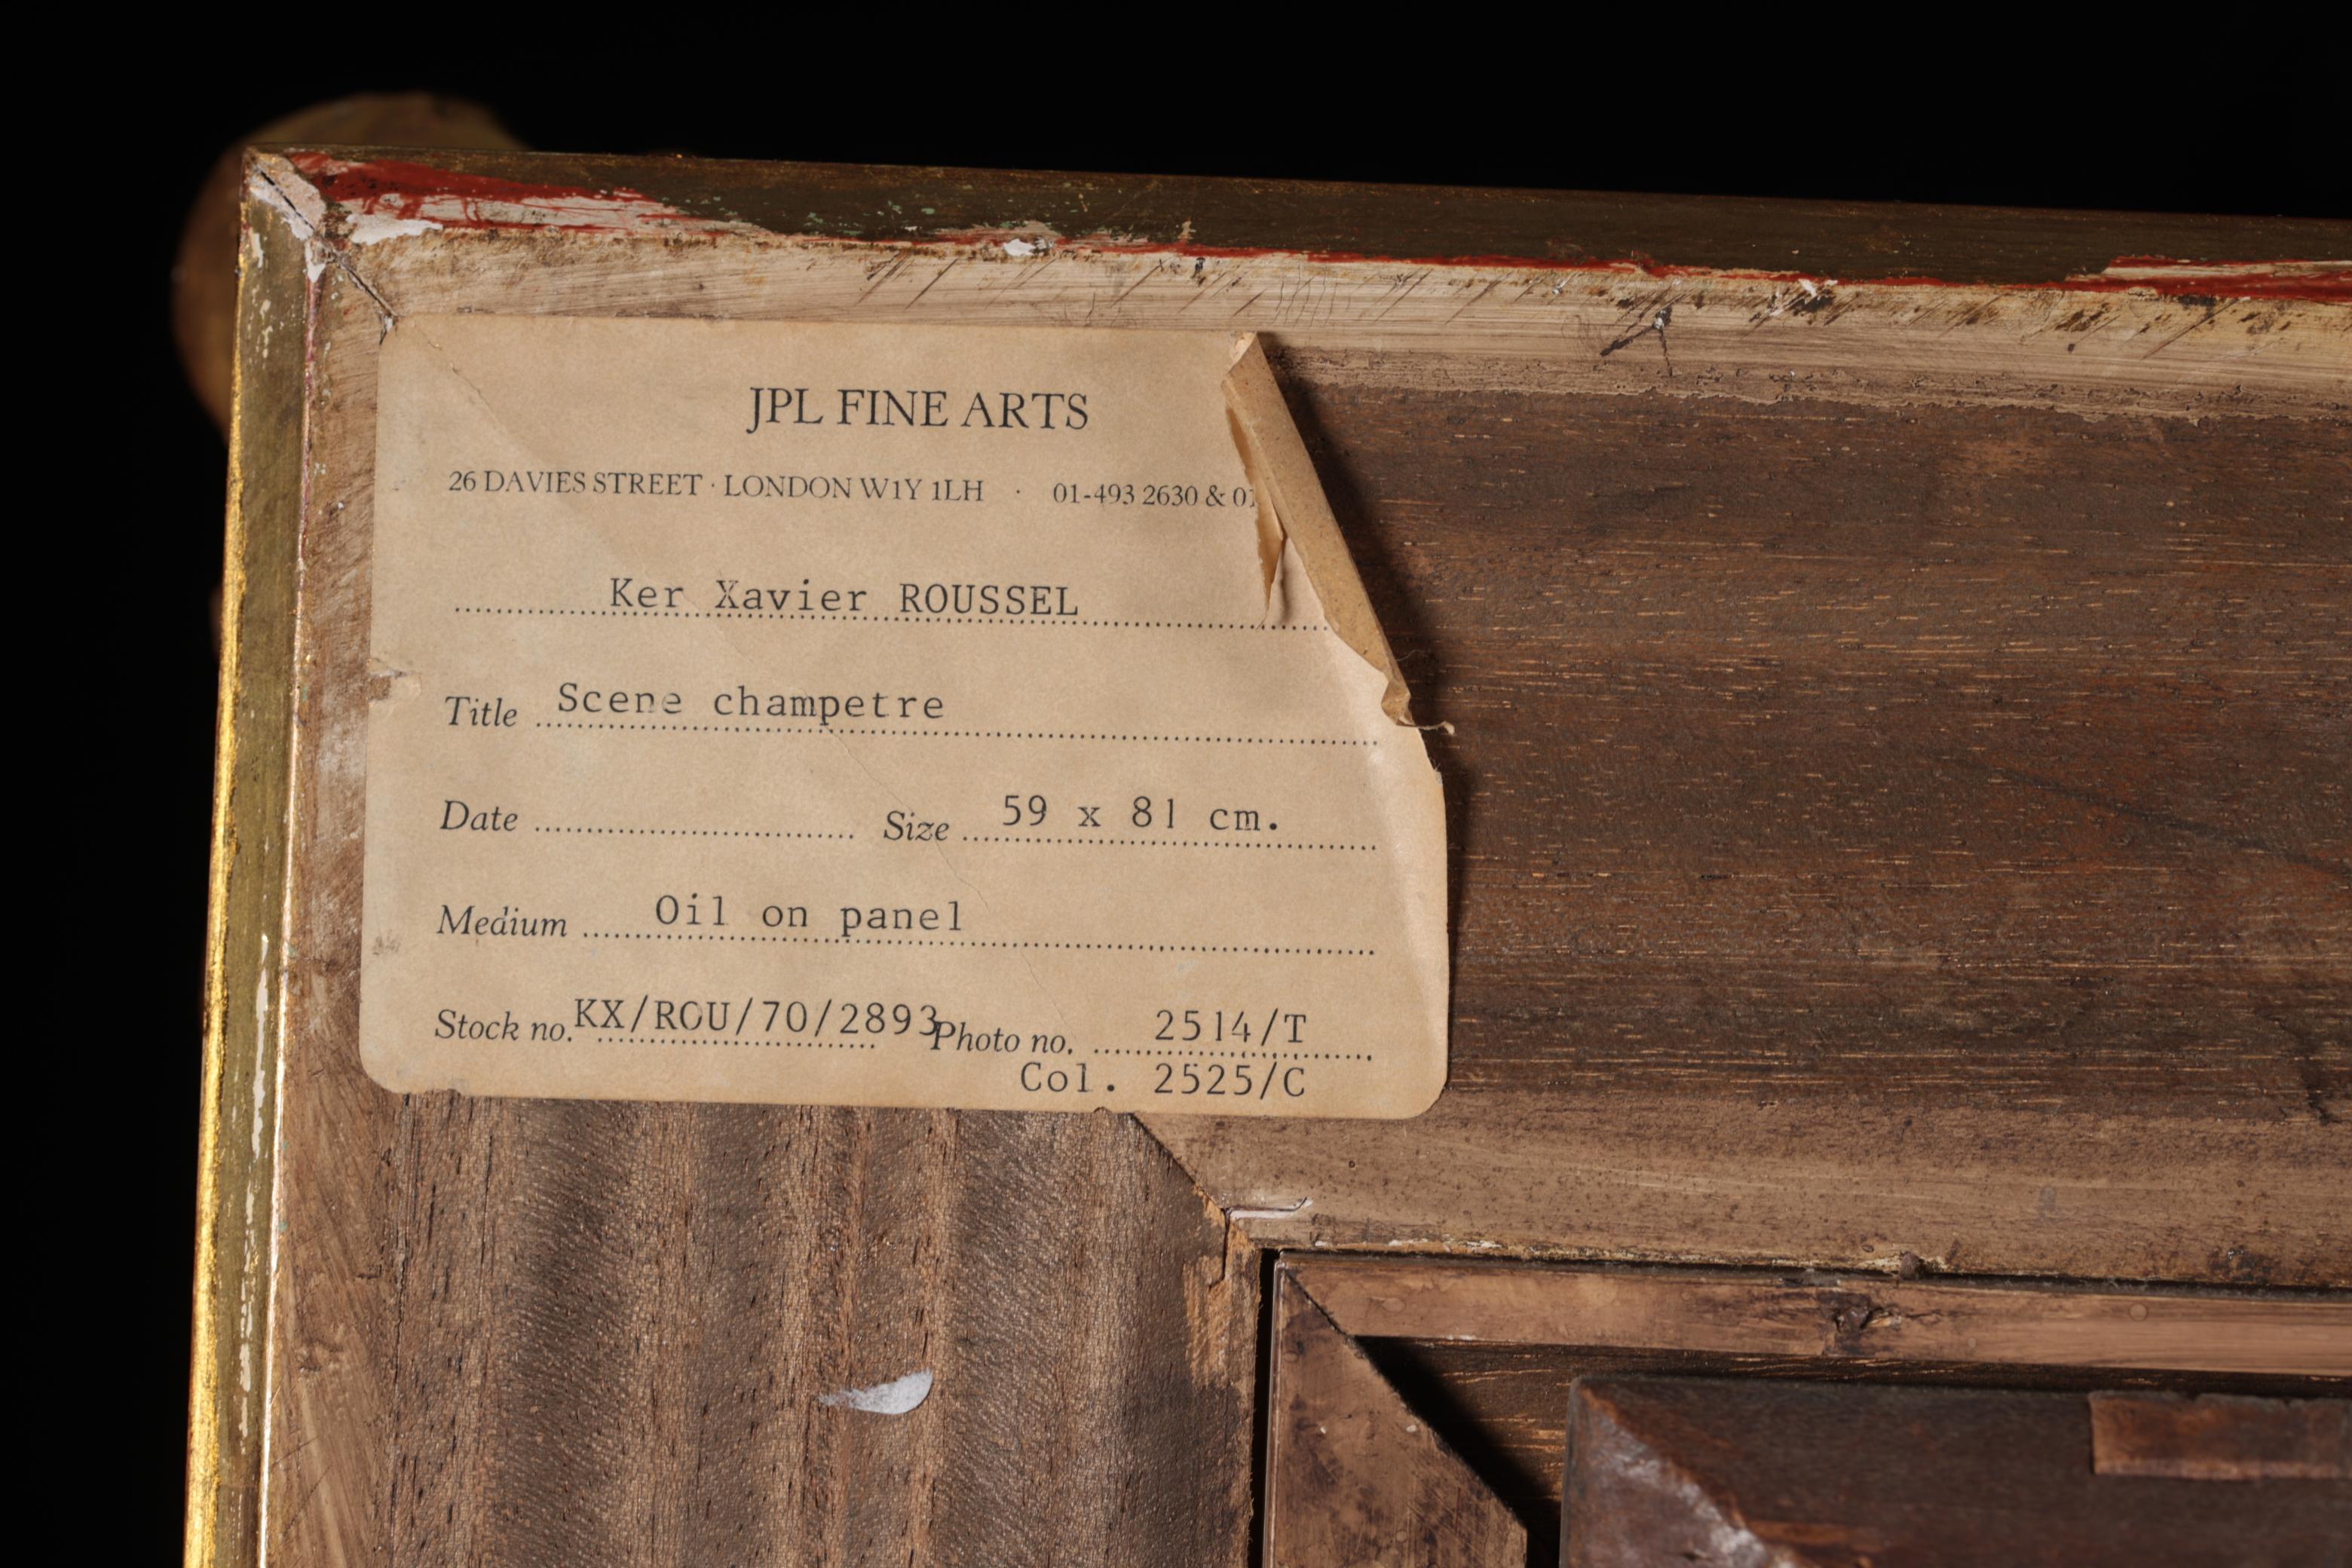 JPL FINE ARTS
26 DAVIES STREET · LONDON W1Y 1LH · 01-493 2630 & 01
Ker Xavier ROUSSEL
Title Scene champetre
Date Size 59 x 81 cm.
Medium Oil on panel
Stock no. KX/ROU/70/2893 Photo no. 2514/T
Col. 2525/C